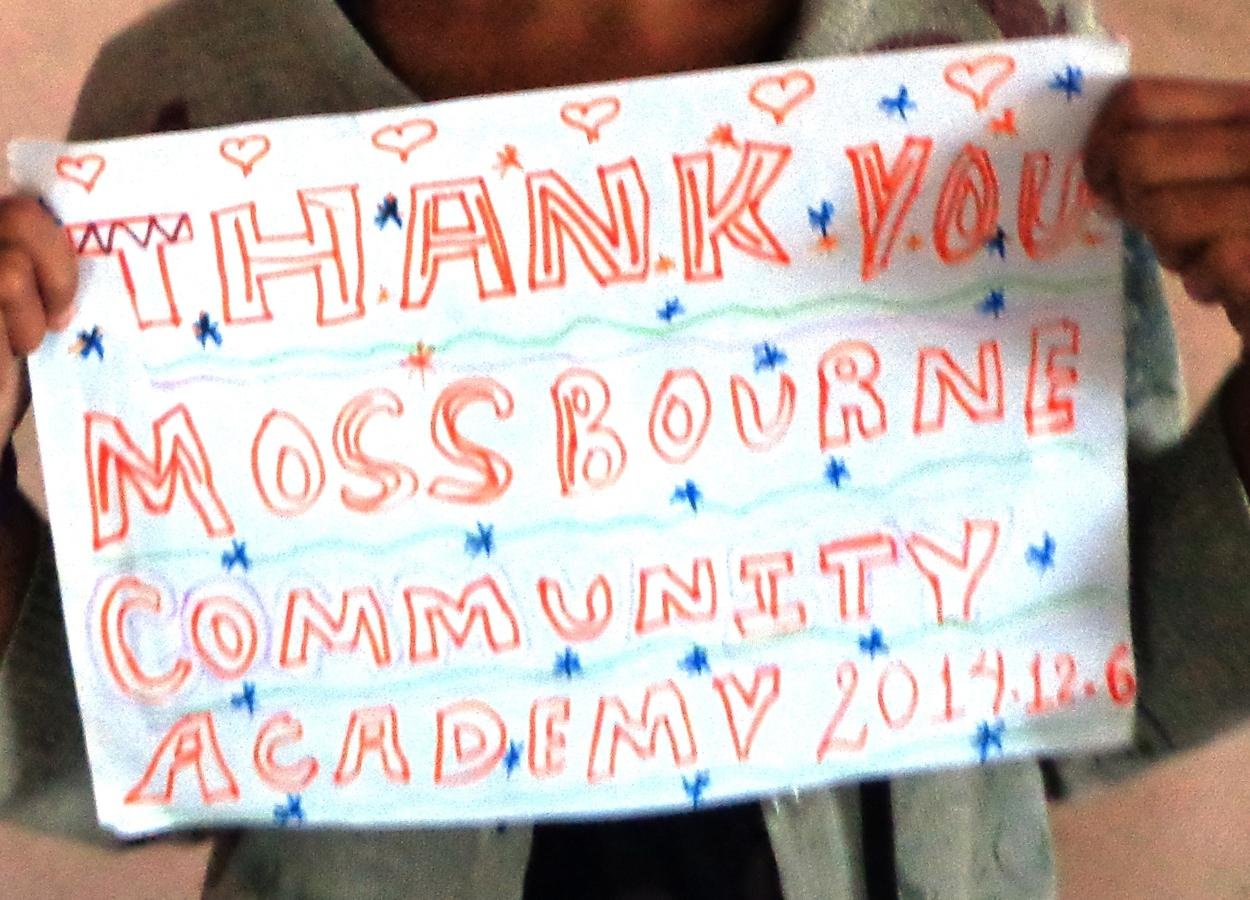 THANK YOU
MOSSBOURNE
COMMUNITY
ACADEMY 2014.12.6